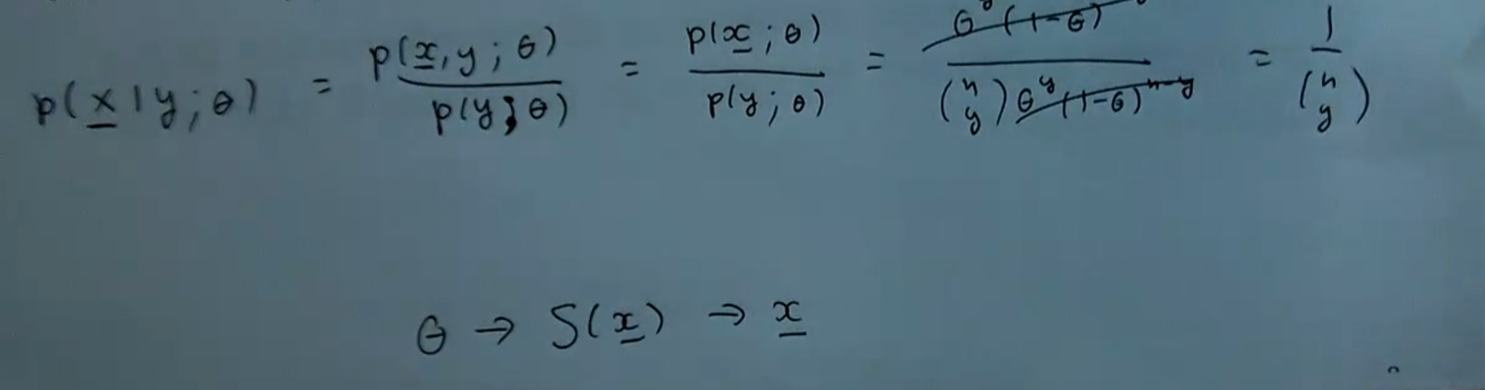 p(x|y;θ) = p(x,y;θ) / p(y;θ) = p(x;θ) / p(y;θ) = θ^y(1-θ) / (n y)θ^y(1-θ)^n-y = 1 / (n y)
θ → S(x) → x